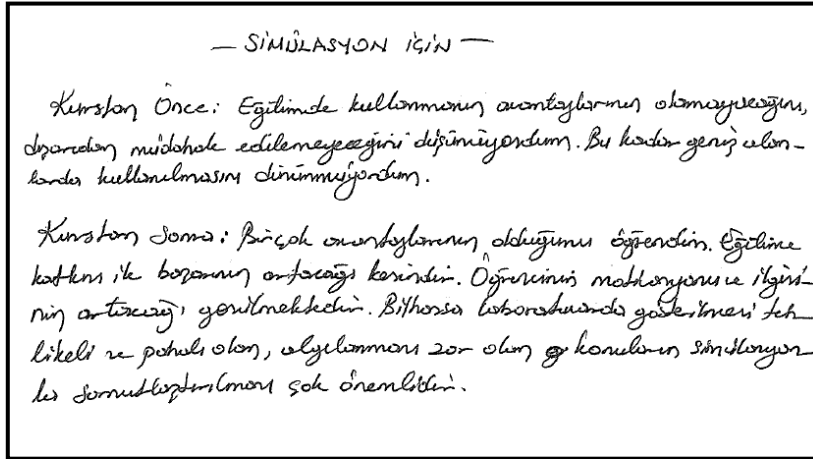 — SİMÜLASYON İÇİN —
Kurstan Önce: Eğitimde kullanmanın avantajlarının olamayacağını,
dışarıdan müdahale edilemeyeceğini düşünüyordum. Bu kadar geniş alan-
larda kullanılmasını düşünmüyordum.
Kurstan Sonra: Birçok avantajlarının olduğunu öğrendim. Eğitime
katkısı ile başarının artacağı kesindir. Öğrencinin motivasyonu ve ilgisi-
nin artacağı görülmektedir. Bilhassa laboratuarda gösterilmesi teh
likeli ve pahalı olan, algılanması zor olan konuların simülasyon
la somutlaştırılması çok önemlidir.